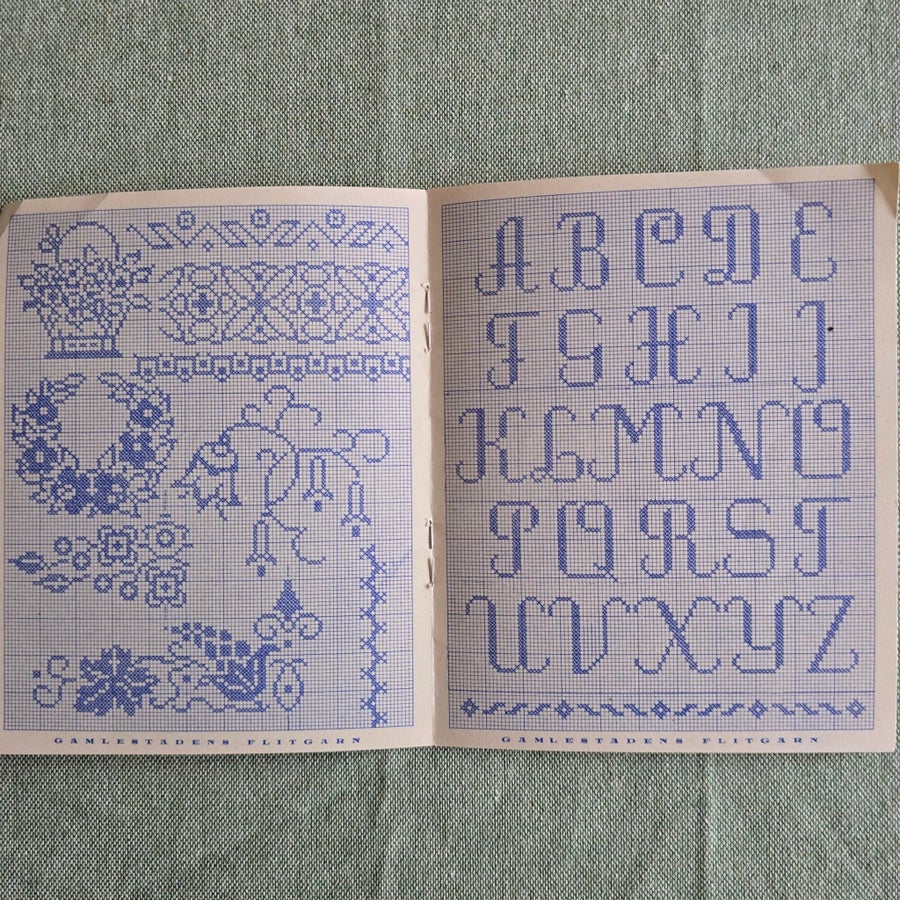 GAMLESTADENS FLITGARN
A B C D E
F G H I J
K L M N O
P Q R S T
U V X Y Z
GAMLESTADENS FLITGARN